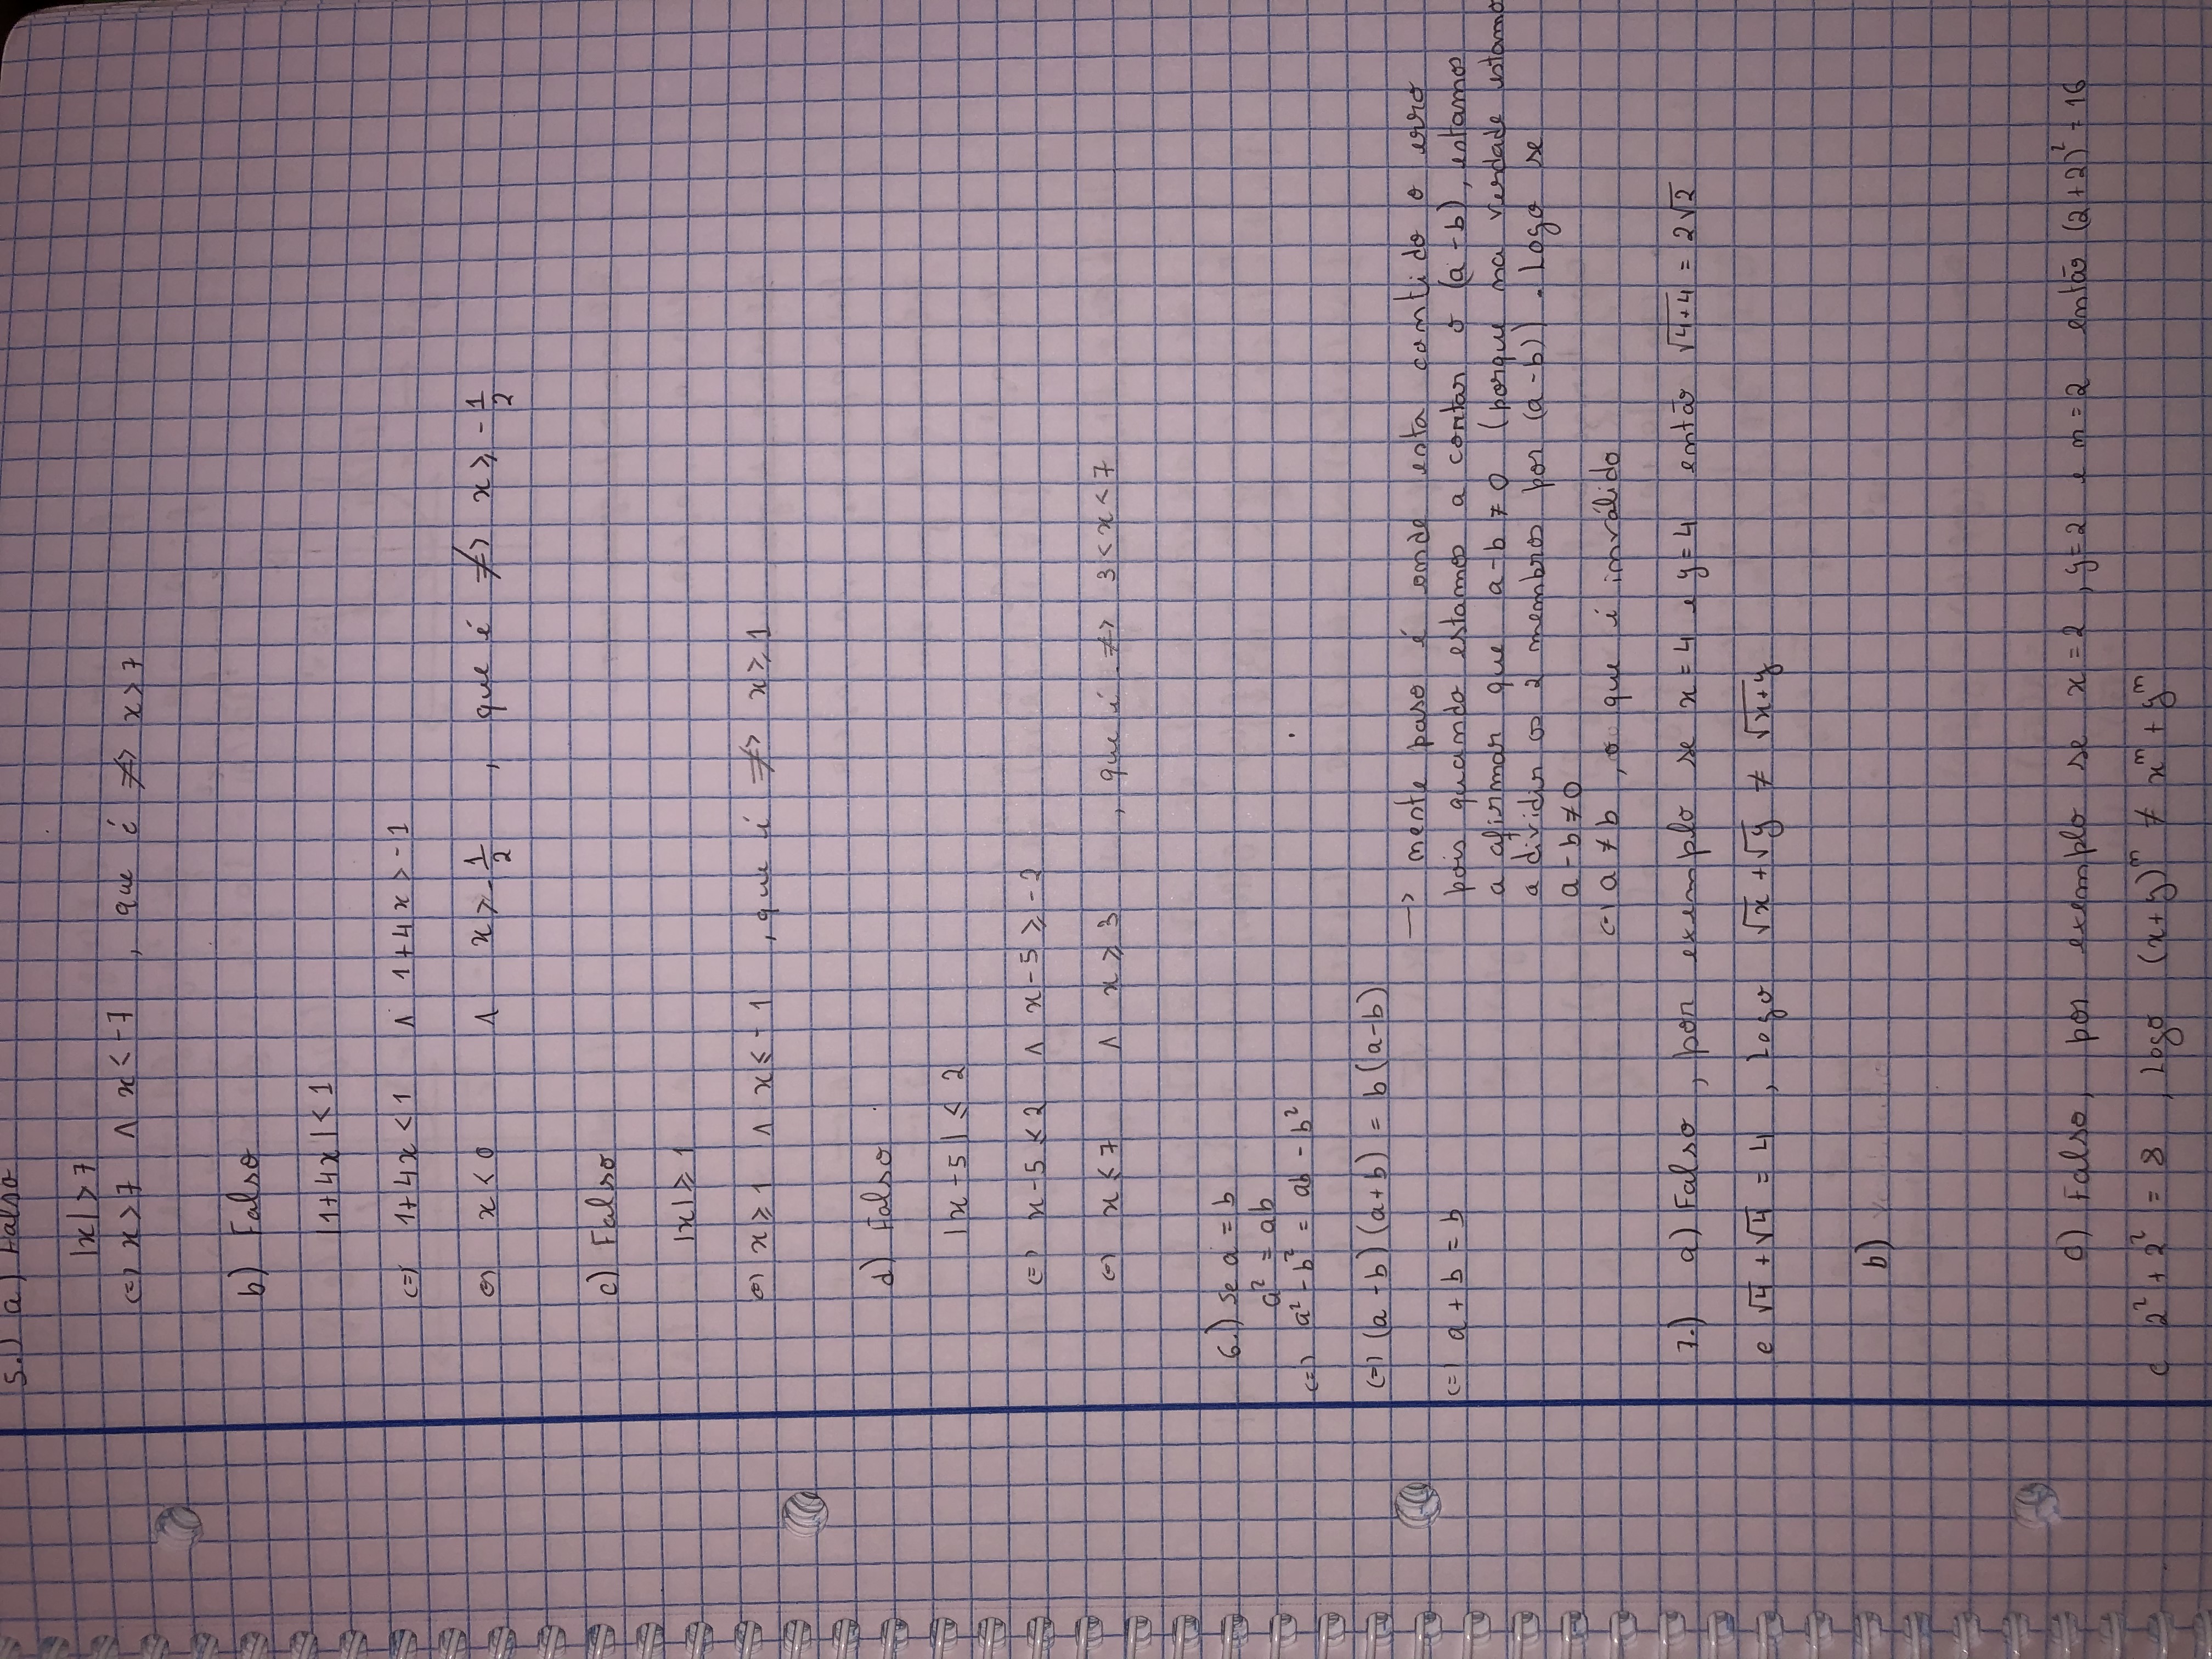 5.) a) Falso
|x| > 7
(=) x > 7 ∧ x < -7 , que é ≠> x > 7
b) Falso
|1+4x| < 1
(=) 1+4x < 1 ∧ 1+4x > -1
(=) x < 0 ∧ x > -1/2 , que é ≠> x ≥ -1/2
c) Falso
|x| ≥ 1
(=) x ≥ 1 ∧ x ≤ -1 , que é ≠> x ≥ 1
d) Falso
|x-5| ≤ 2
(=) x-5 ≤ 2 ∧ x-5 ≥ -2
(=) x ≤ 7 ∧ x ≥ 3 , que é ≠> 3 < x < 7
6.) se a = b
a² = ab
(=) a² - b² = ab - b²
(=) (a-b)(a+b) = b(a-b)
(=) a + b = b
-> neste paso é onde esta contido o erro
pois quando estamos a cortar o (a-b), estamos
a afirmar que a-b ≠ 0 (porque na verdade estamo
a dividir os 2 membros por (a-b)). Logo se
a-b ≠ 0
(=) a ≠ b , o que é inválido
7.) a) Falso, por exemplo se x = 4 e y = 4 então √(4+4) = 2√2
e √4 + √4 = 4 , Logo √x + √y ≠ √(x+y)
b)
c) Falso, por exemplo se x = 2 , y = 2 e n = 2 então (2+2)² = 16
e 2² + 2² = 8 , Logo (x+y)ⁿ ≠ xⁿ + yⁿ